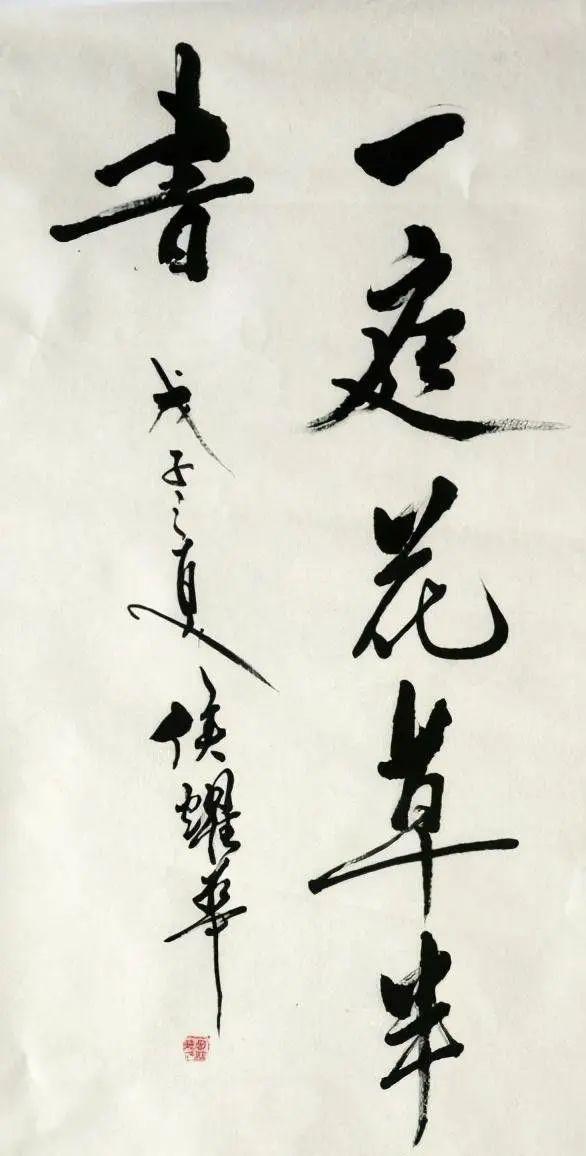 一庭花草半
書
戊子之夏
侯耀華